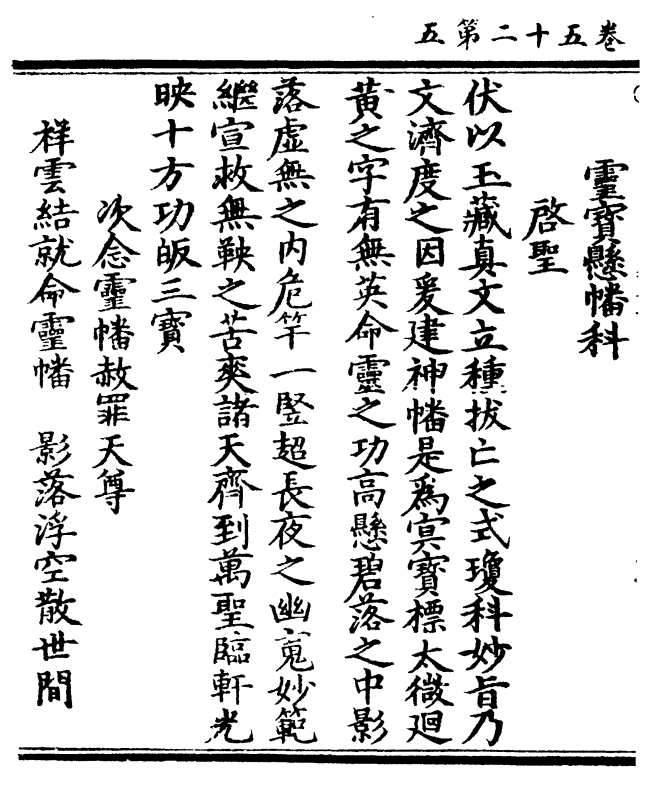 卷五十二第五
靈寶懸幡科
啓聖
伏以玉藏真文立種拔亡之式瓊科妙旨乃
文濟度之因爰建神幡是為冥寶標太微廻
黃之字有無英命靈之功高懸碧落之中影
落虛無之內危竿一竪超長夜之幽䰟妙範
繼宣救無鞅之苦爽諸天齊到萬聖臨軒光
映十方功皈三寶
次念靈幡赦罪天尊
祥雲結就命靈幡 影落浮空散世間